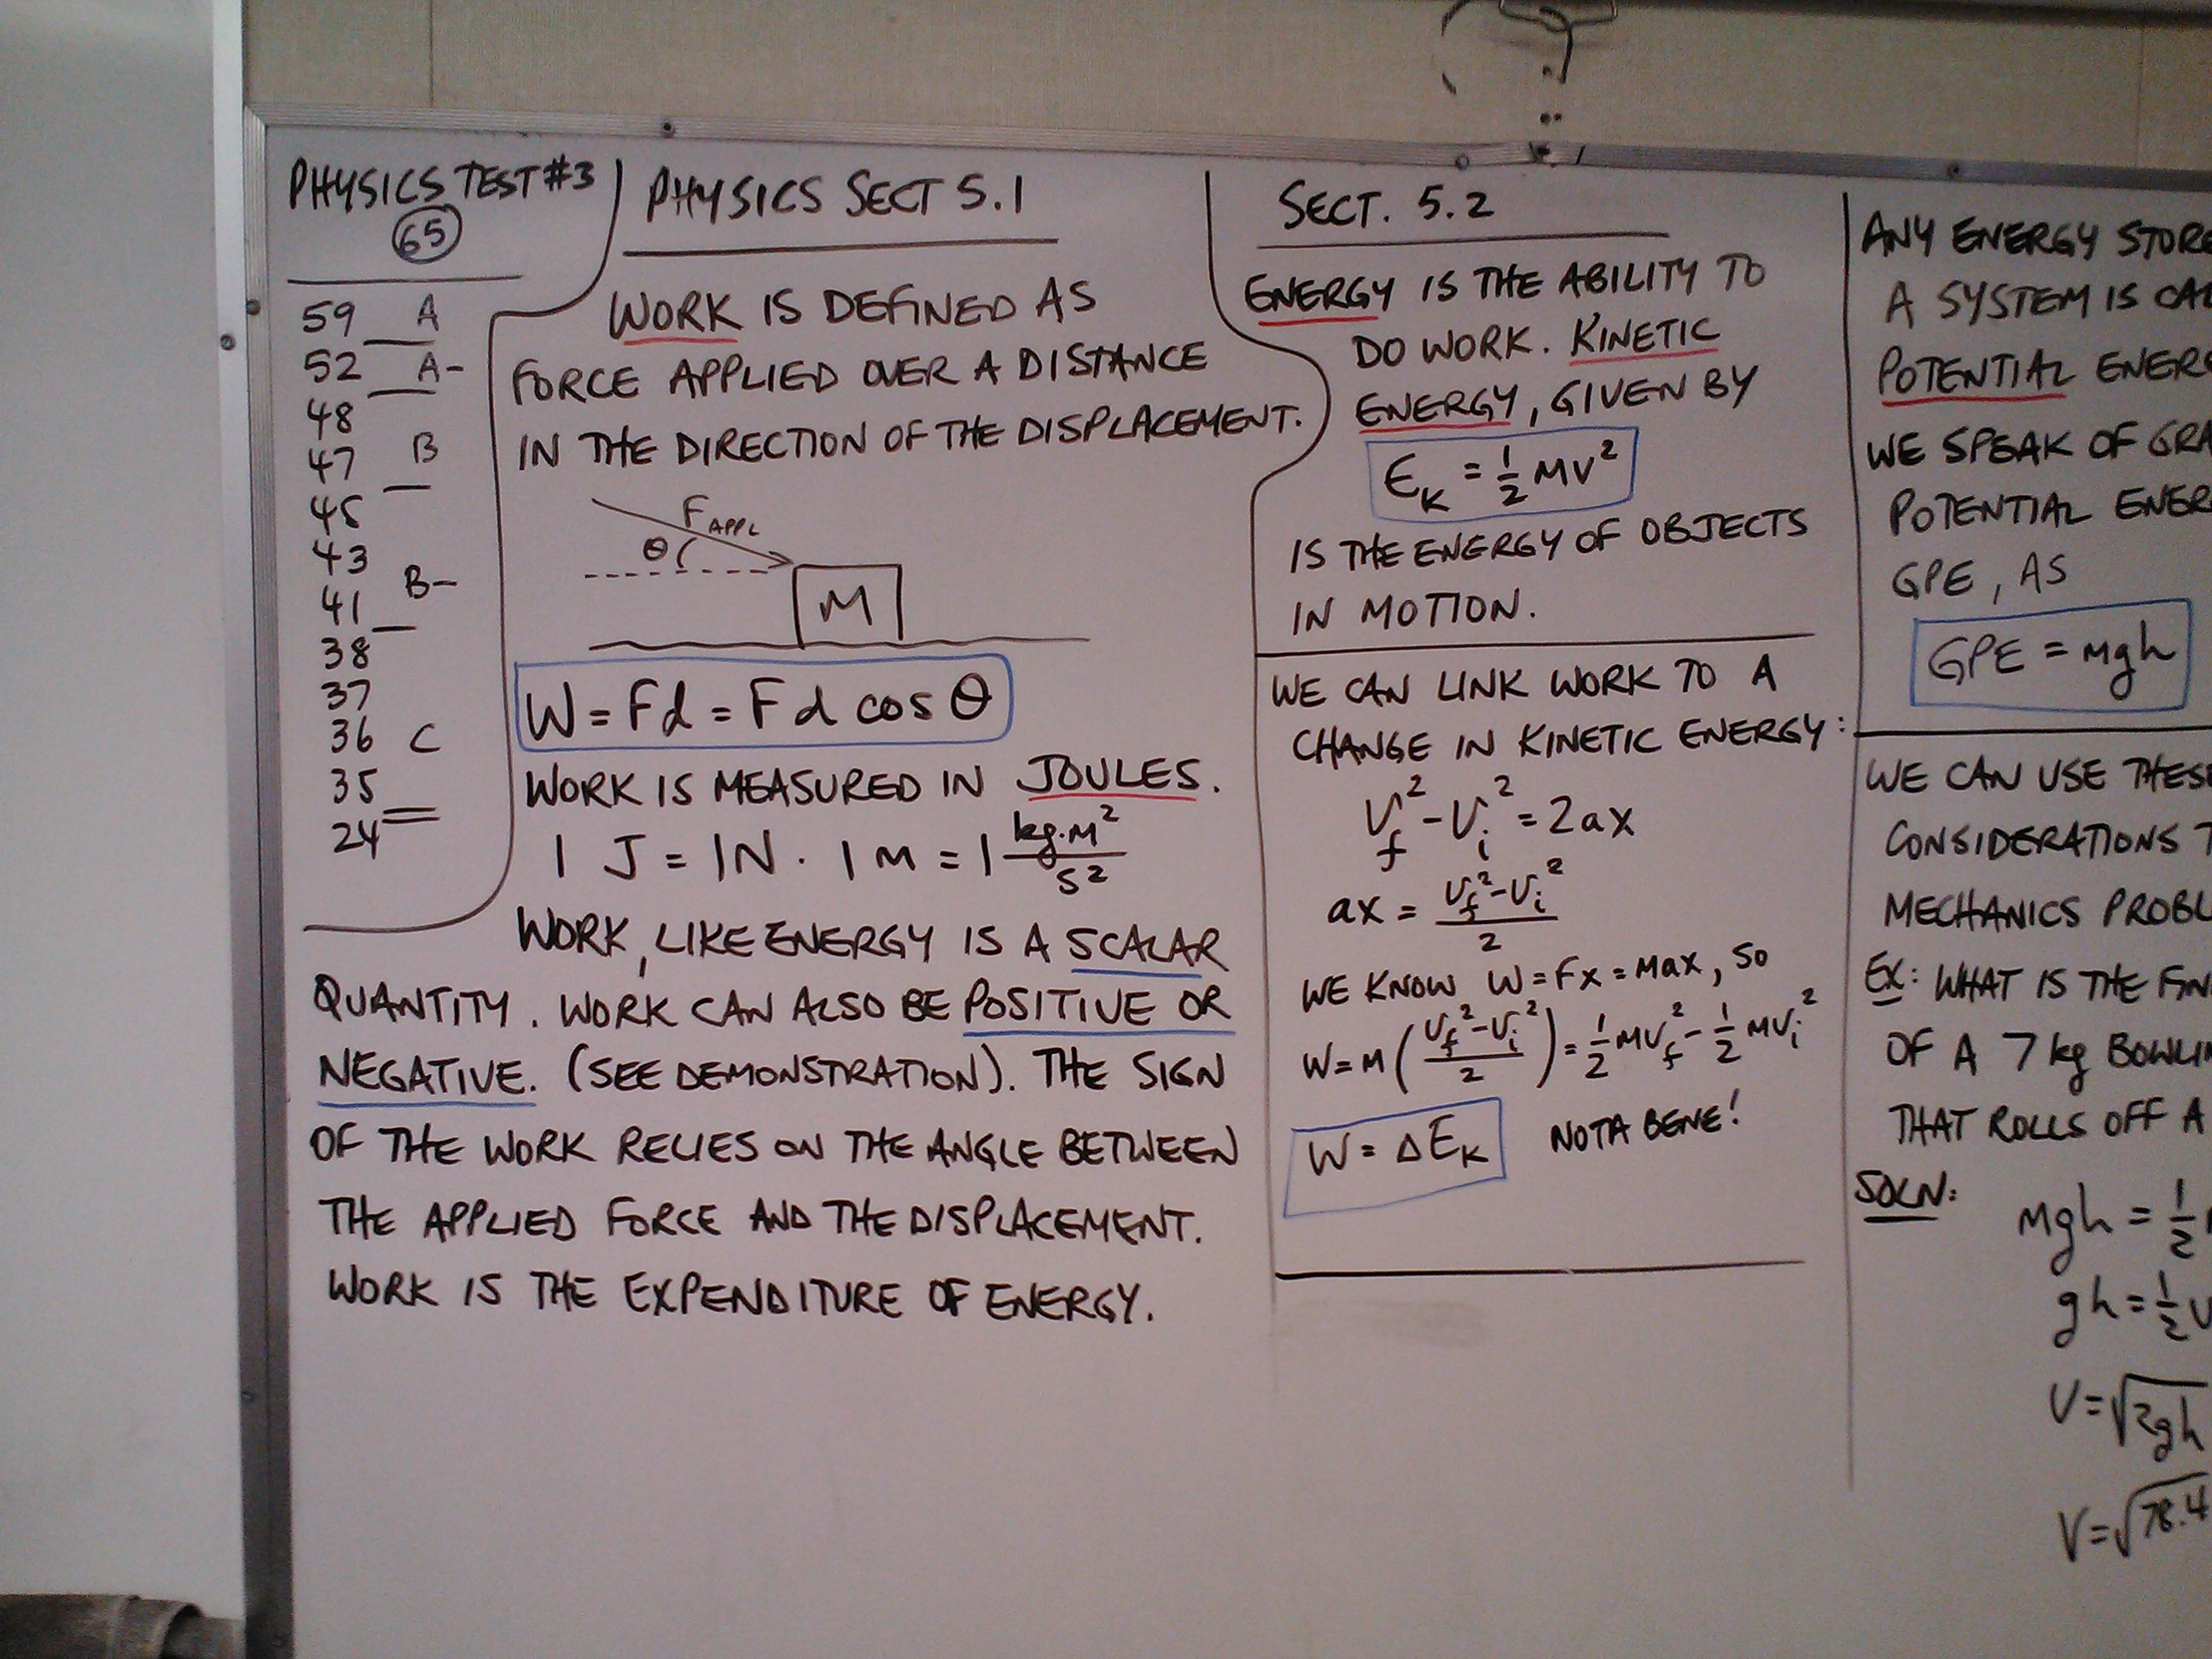 PHYSICS TEST #3
65
59 A
52 A-
48
47 B
45
43
41 B-
38
37
36 C
35
24
PHYSICS SECT 5.1
WORK IS DEFINED AS
FORCE APPLIED OVER A DISTANCE
IN THE DIRECTION OF THE DISPLACEMENT.
F APPL
θ
M
W = Fd = Fd cos θ
WORK IS MEASURED IN JOULES.
1 J = 1N · 1 M = 1 kg·M²/S²
WORK, LIKE ENERGY IS A SCALAR
QUANTITY. WORK CAN ALSO BE POSITIVE OR
NEGATIVE. (SEE DEMONSTRATION). THE SIGN
OF THE WORK RELIES ON THE ANGLE BETWEEN
THE APPLIED FORCE AND THE DISPLACEMENT.
WORK IS THE EXPENDITURE OF ENERGY.
SECT. 5.2
ENERGY IS THE ABILITY TO
DO WORK. KINETIC
ENERGY, GIVEN BY
E_K = 1/2 MV²
IS THE ENERGY OF OBJECTS
IN MOTION.
WE CAN LINK WORK TO A
CHANGE IN KINETIC ENERGY:
V_f² - V_i² = 2ax
ax = (V_f² - V_i²)/2
WE KNOW W = Fx = Max, SO
W = M((V_f² - V_i²)/2) = 1/2 MV_f² - 1/2 MV_i²
W = ΔE_K NOTA BENE!
ANY ENERGY STORE
A SYSTEM IS CA
POTENTIAL ENERG
WE SPEAK OF GRA
POTENTIAL ENER
GPE, AS
GPE = mgh
WE CAN USE THESE
CONSIDERATIONS T
MECHANICS PROBL
EX: WHAT IS THE FIN
OF A 7 kg BOWLIN
THAT ROLLS OFF A
SOLN:
mgh = 1/2
gh = 1/2 v
V = √2gh
V = √78.4